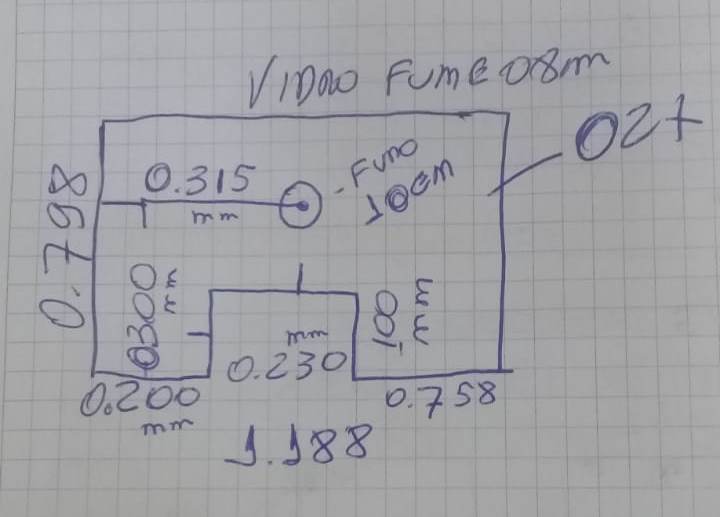 VIDRO FUME 08m
02+
0.315
mm
-FURO
10cm
0.798
0300
mm
100
mm
mm
0.230
0.200
mm
0.758
1.188